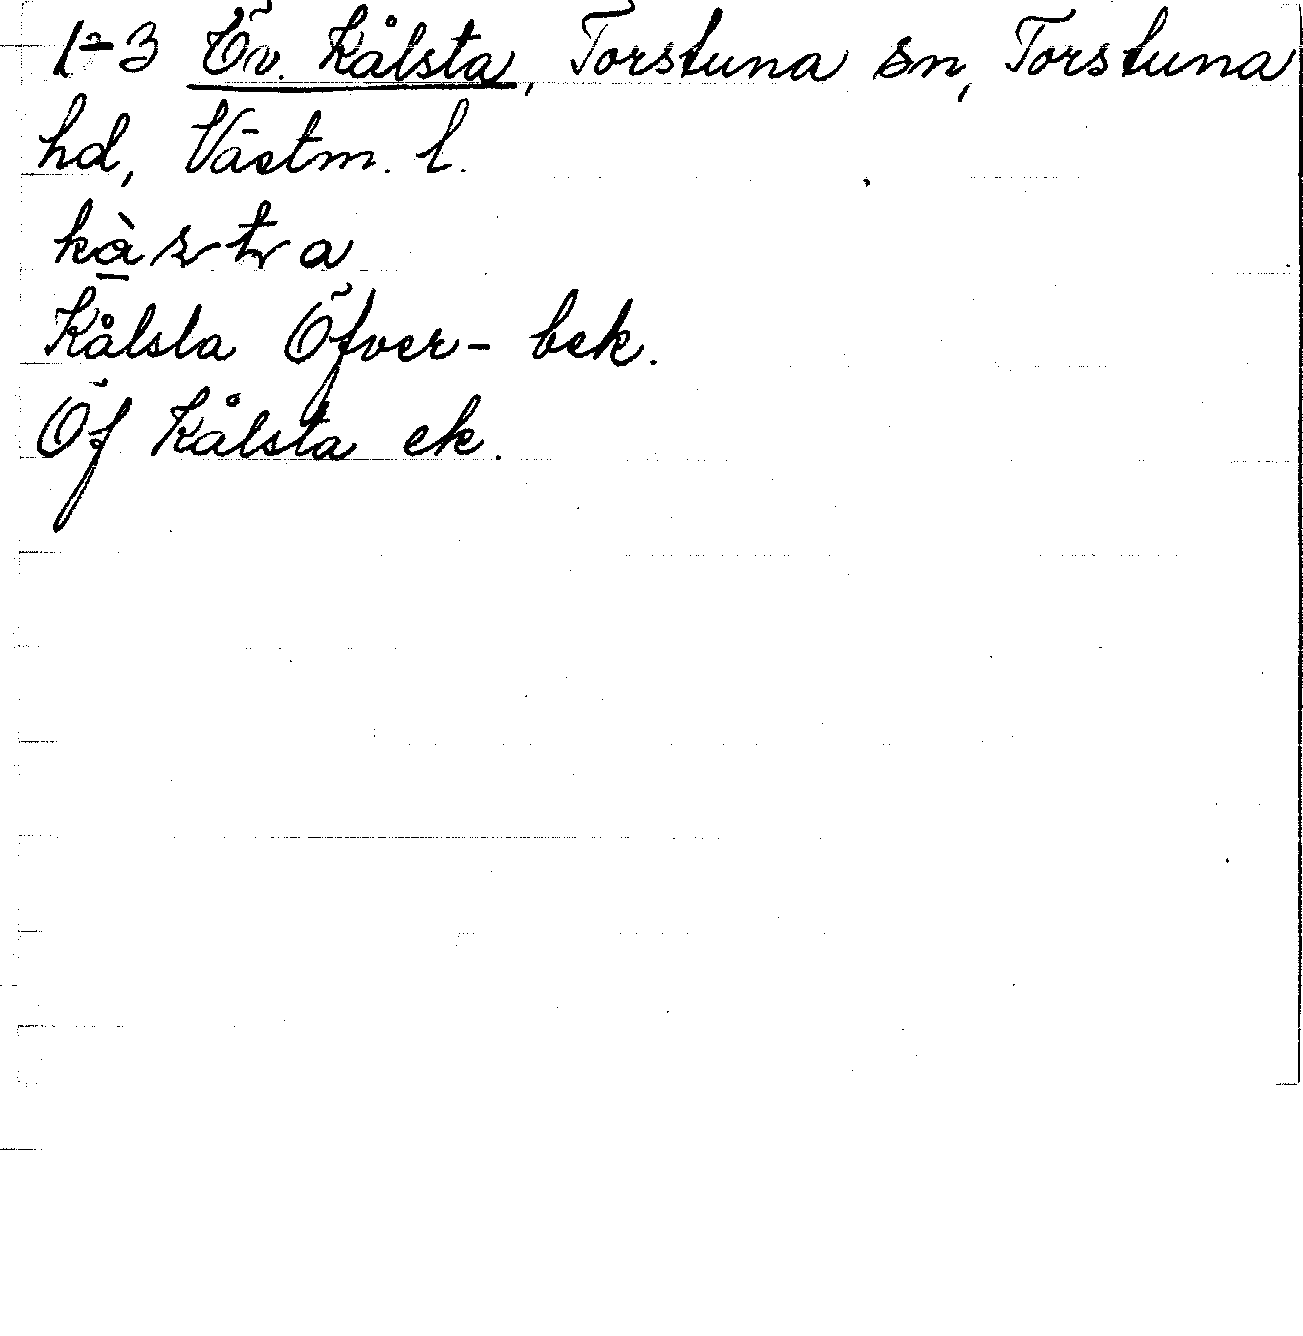 1-3 Öv. Kålsta, Torstuna sn, Torstuna
hd, Västm. l.
Kålsta Öfver- bek.
Öf Kålsta ek.